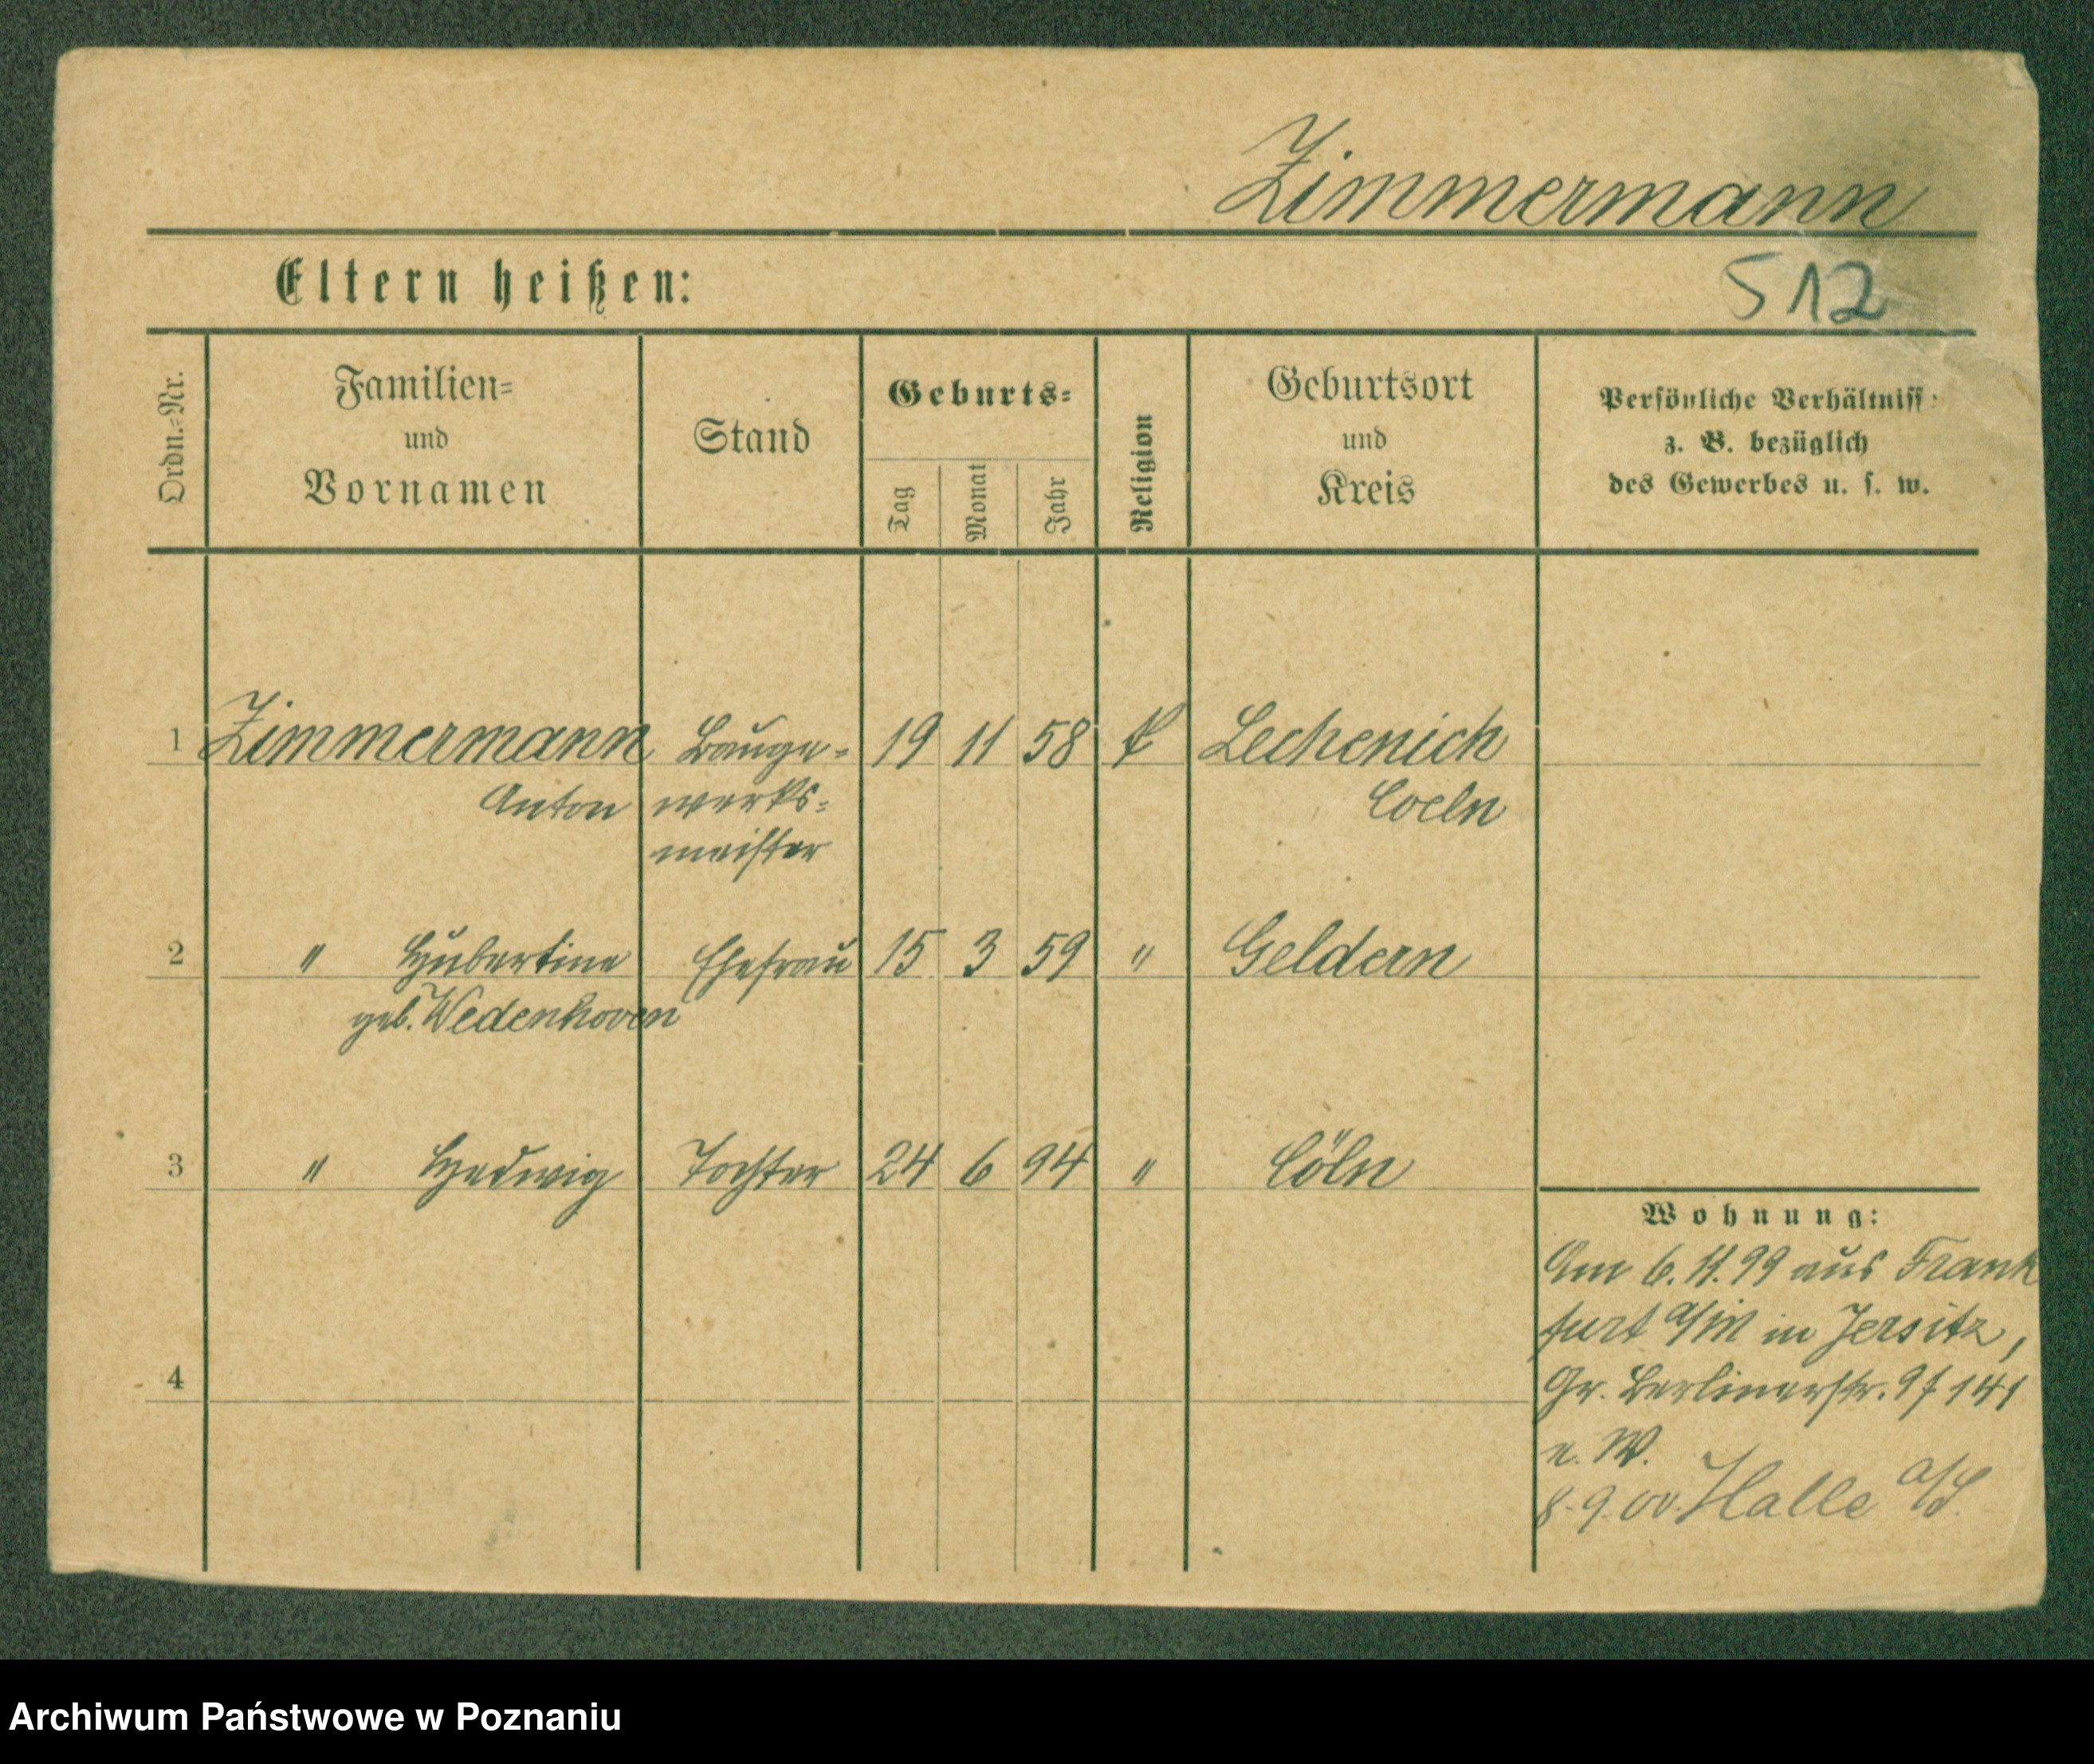 Zimmermann
Eltern heißen:
512
Ordn.-Nr.
Familien-
und
Vornamen
Stand
Geburts-
Tag
Monat
Jahr
Religion
Geburtsort
und
Kreis
Persönliche Verhältniss
z. B. bezüglich
des Gewerbes u. s. w.
1 Zimmermann Bauge- 19 11 58 k Lechenich
Anton werks- Coeln
meister
2 " Hubertine Ehefrau 15 3 59 " Geldern
geb. Wedenhoven
3 " Hedwig Tochter 24 6 94 " Cöln
Wohnung:
Am 6.11.99 aus Frank
furt a/M in Jersitz,
Gr. Berlinerstr. 141
4
n. W.
8.9.00. Halle a/S.
Archiwum Państwowe w Poznaniu